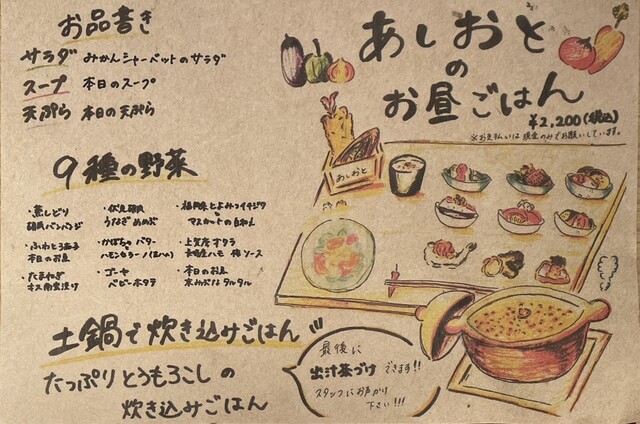 お品書き
サラダ みかんシャーベットのサラダ
スープ 本日のスープ
天ぷら 本日の天ぷら
9種の野菜
・蒸しどり
バンバンジ
・ふわとろ
本日のお魚
・たまねぎ
南蛮漬け
うなぎ
・かぼちゃバター
ハモンセラーノ(生ハム)
・ゴーヤ
ベビーホタテ
・福岡味とよみつイチジク
マスカットの白和え
・上賀茂オクラ
長崎産ハモ 梅ソース
・本日のお魚
水みぶなタルタル
土鍋で炊き込みごはん
たっぷりとうもろこしの
炊き込みごはん
あしおと
の
お昼ごはん
¥2,200(税込)
※お支払いは現金のみでお願いしています。
あしおと
最後に
出汁茶づけできます!!
スタッフにお声がけ
下さい!!!